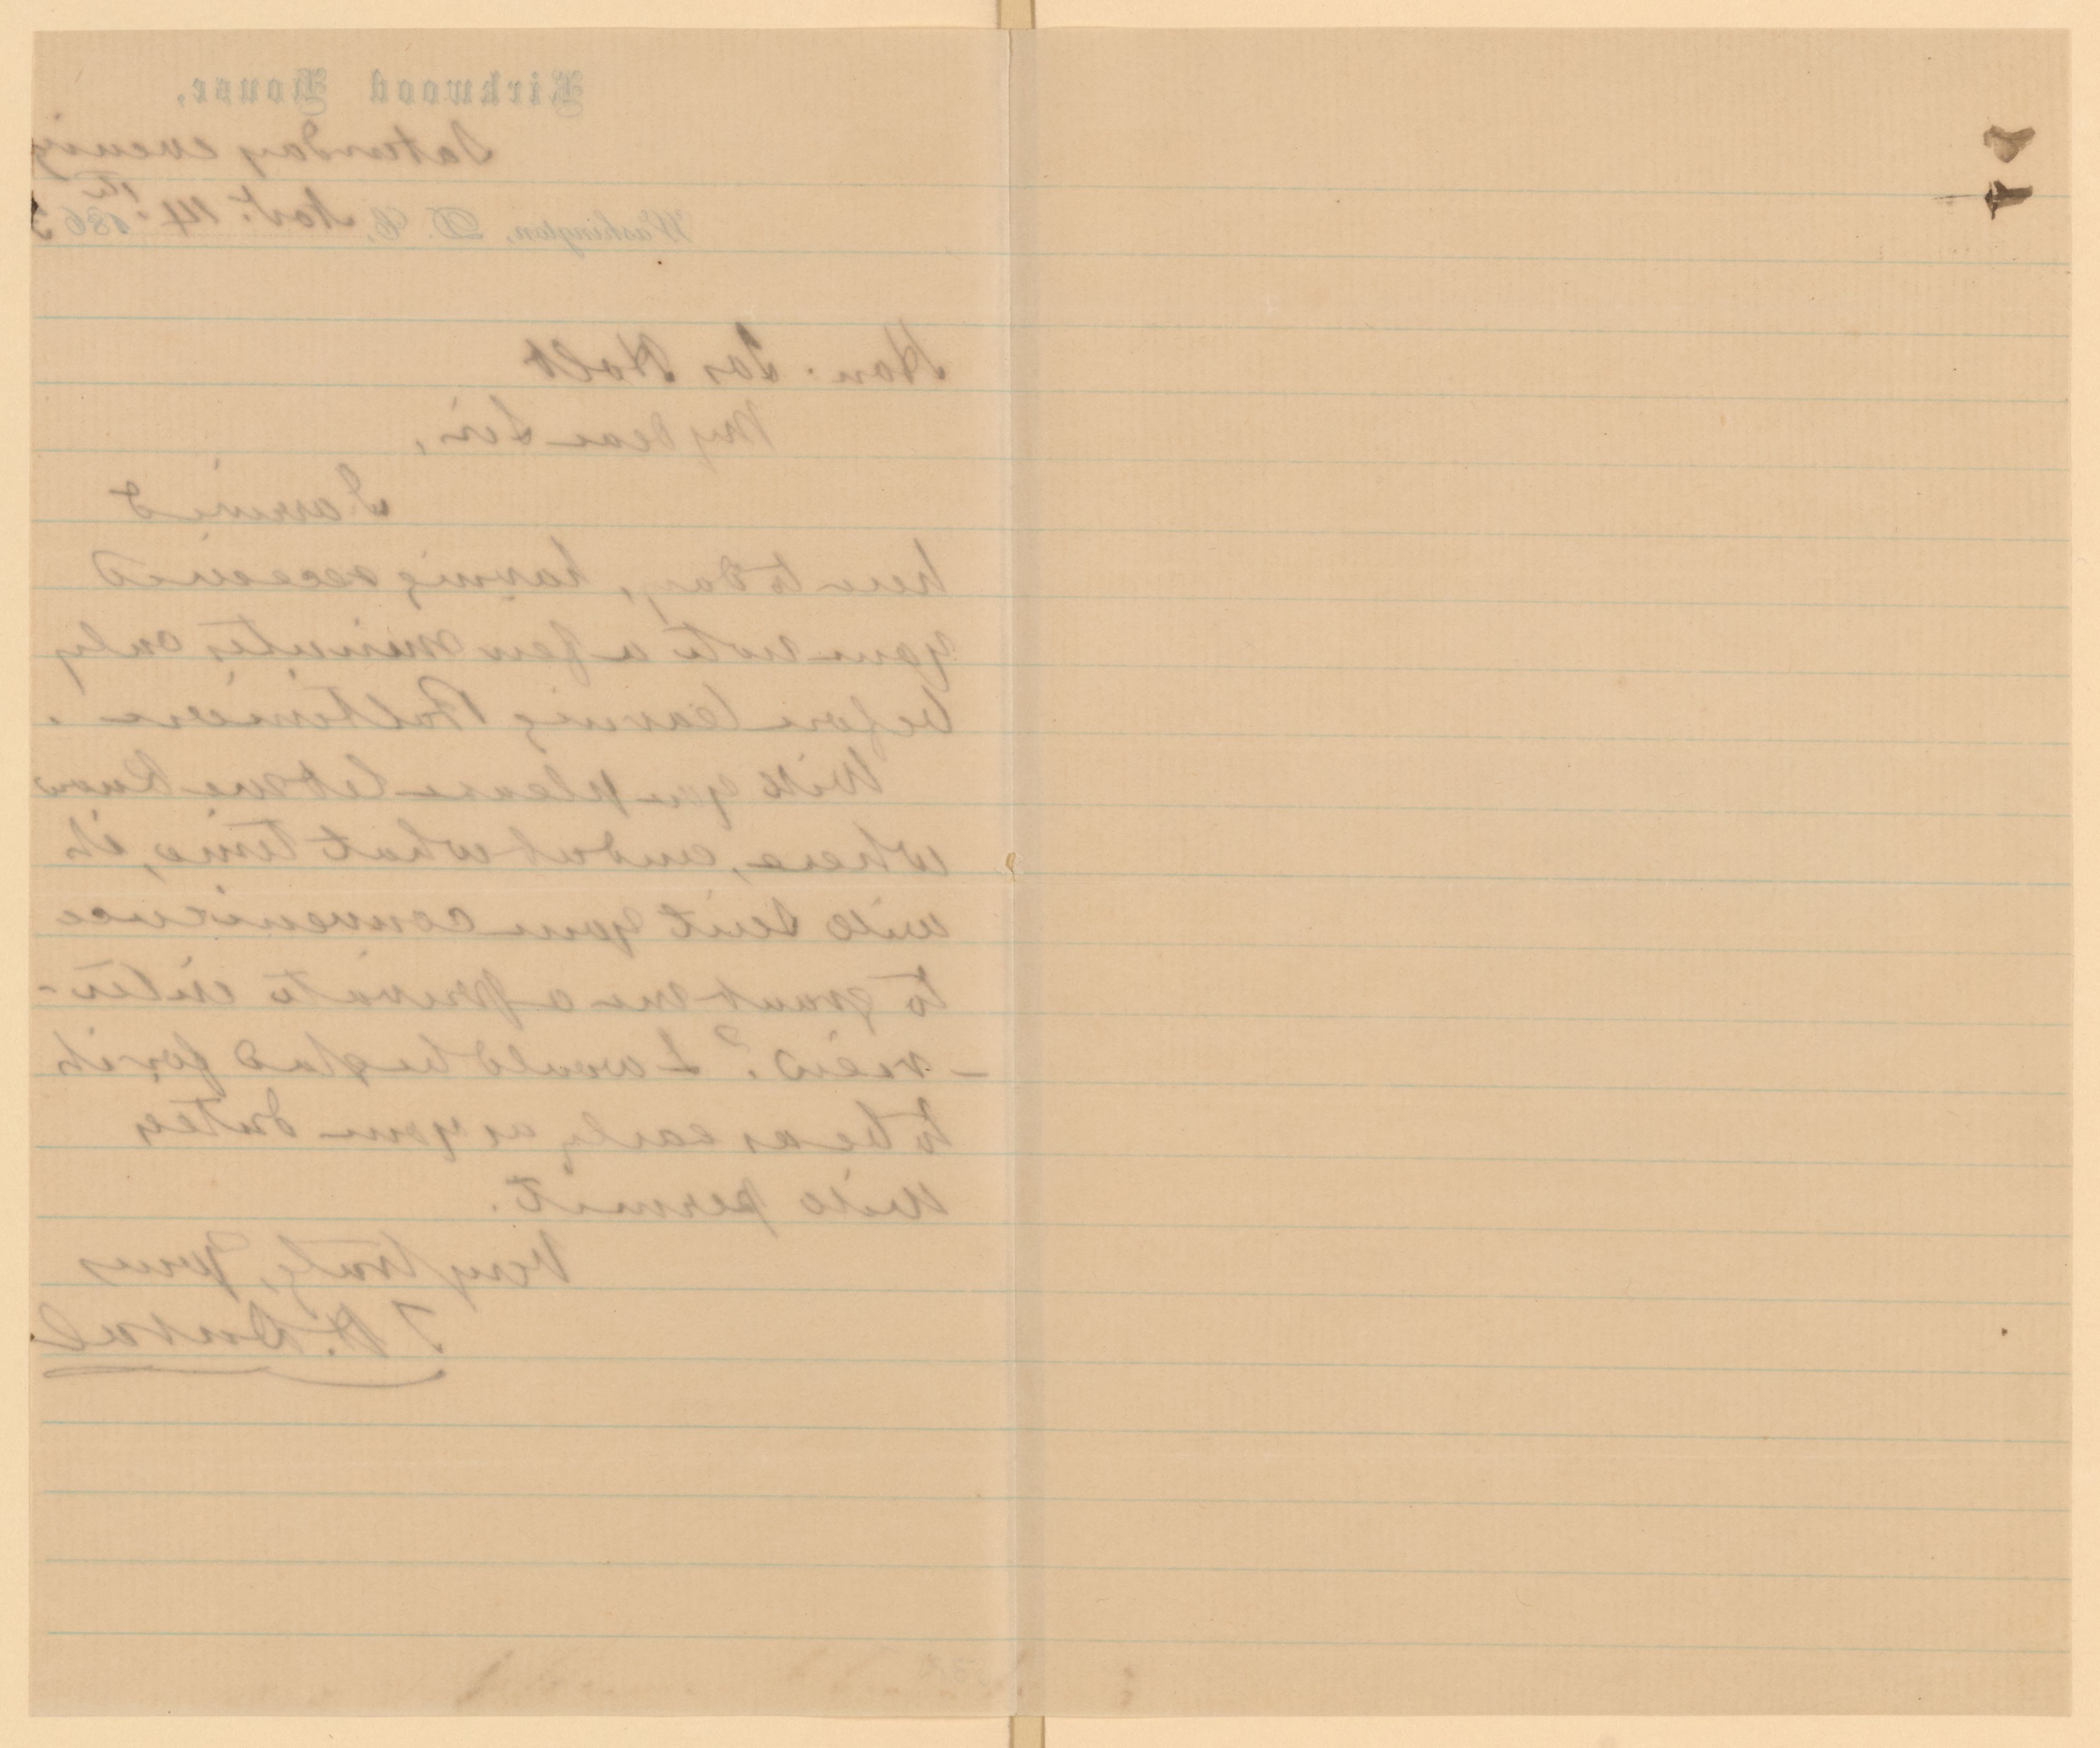 Kirkwood House,
Saturday evening
Washington, D. C. Nov. 14th. 1863
Hon. Jos Holt
My dear Sir,
I arrived
here to day, having received
your note a few minutes only
before leaving Baltimore.
Will you please let me know
where, and at what time, it
will suit your convenience
to grant me a private inter-
-view? I would be glad for it
to be as early as your duties
will permit.
Very truly, yours
T. H. Duval